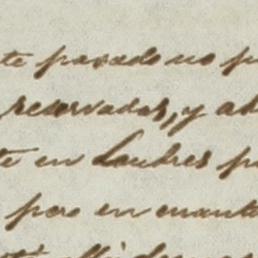 te pasado no p
reservadas, y ab
te en Londres p
pero en cuanto